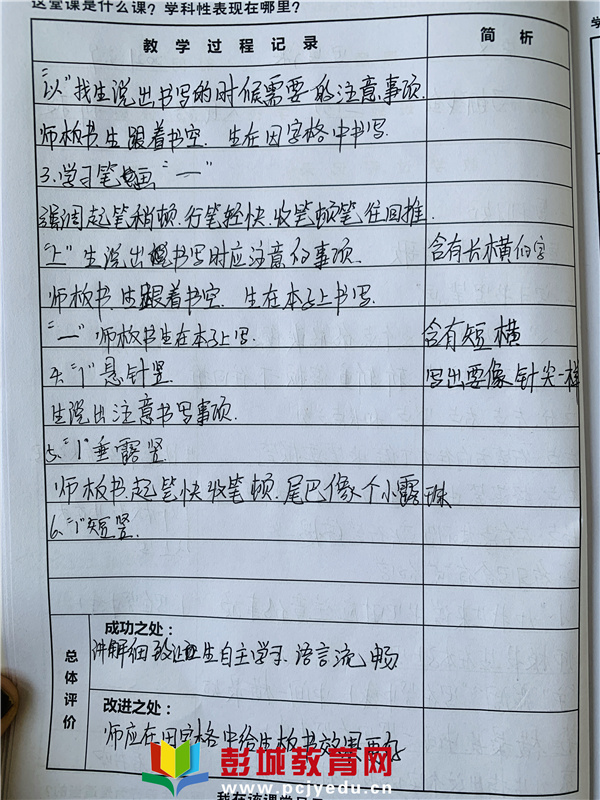 这堂课是什么课？学科性表现在哪里？
教学过程记录
简析
“以”找生说出书写的时候需要的注意事项.
师板书,生跟着书空. 生在田字格中书写.
3.学习笔画“一”
强调起笔稍顿.行笔轻快.收笔顿笔往回推.
“上”生说出书写时应注意的事项.
含有长横的字
师板书,生跟着书空. 生在本子上书写.
“一”师板书生在本子上写.
含有短横
4.“丨”悬针竖
写出要像针尖一样
生说出注意书写事项.
5.“丨”垂露竖
师板书.起笔快收笔顿.尾巴像个小露珠
6.“丨”短竖.
总体评价
成功之处：
讲解细致 生自主学习.语言流畅
改进之处：
师应在田字格中给生板书效果更好
彭城教育网
www.pcjyedu.cn